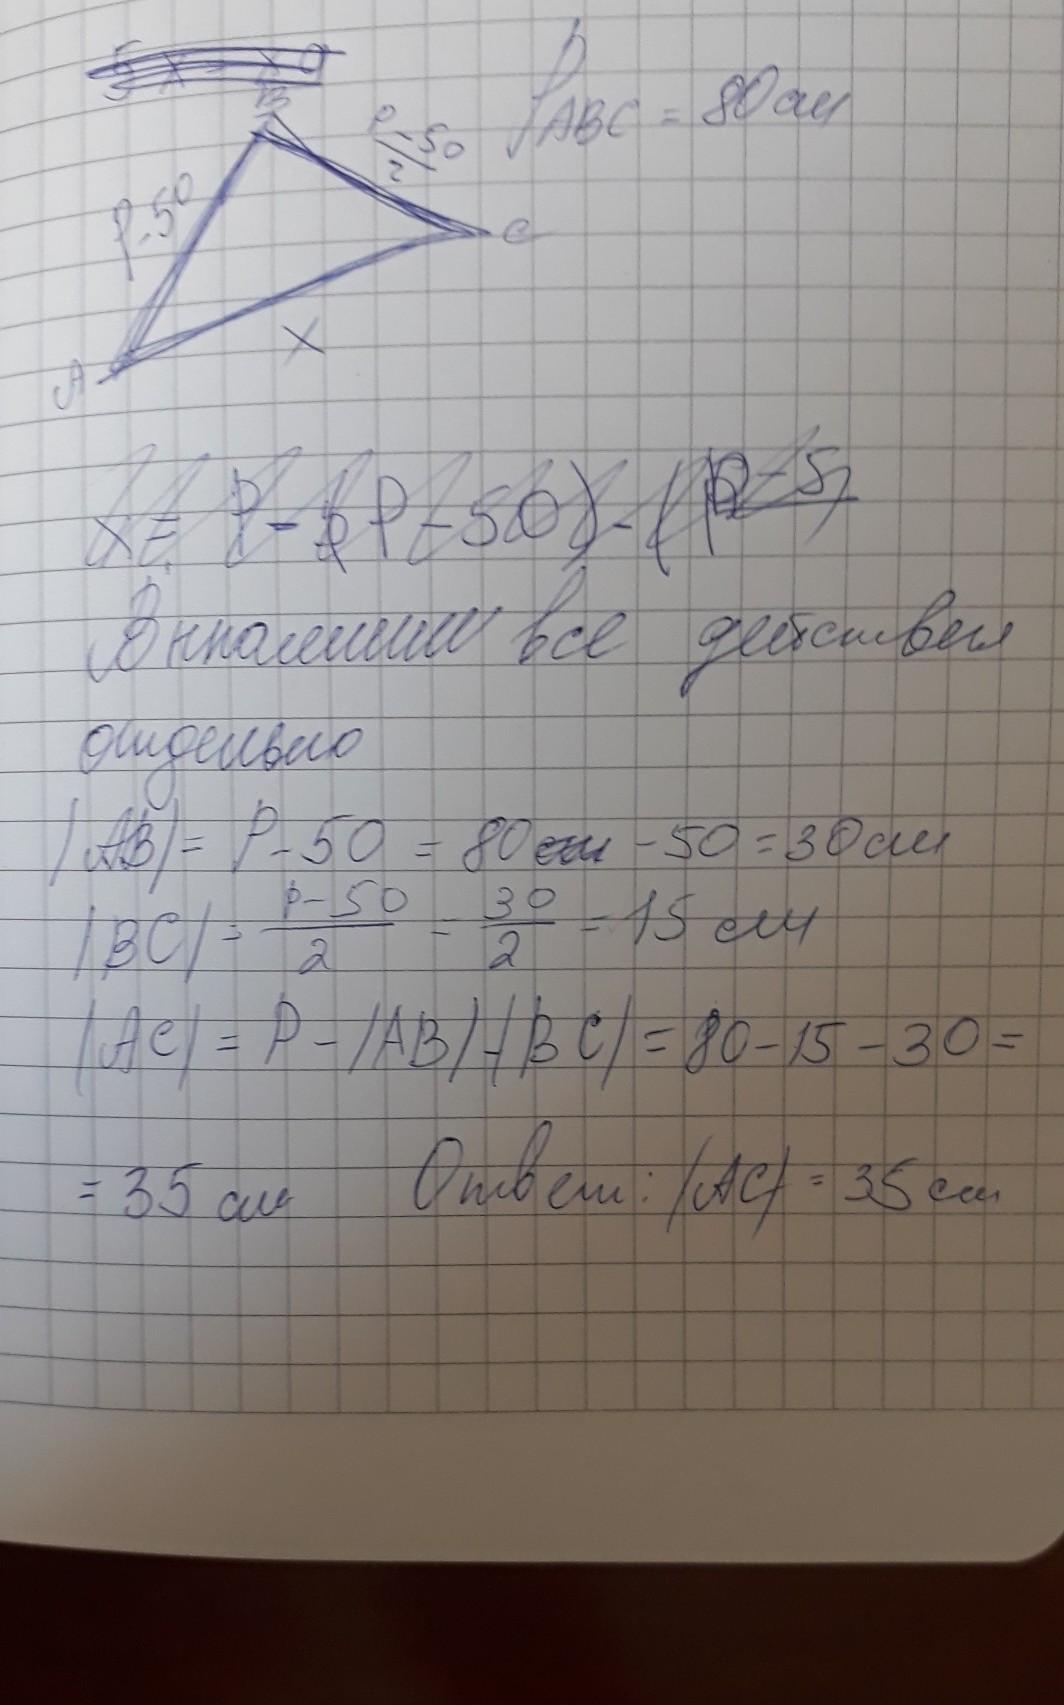 B
P-50
P-50
2
P ABC = 80см
C
X
A
x = P - (P-50) - (P-5
Выполним все действия
отдельно
|AB| = P-50 = 80см - 50 = 30см
|BC| = P-50/2 = 30/2 = 15 см
|AC| = P - |AB| - |BC| = 80 - 15 - 30 =
= 35 см Ответ: |AC| = 35 см